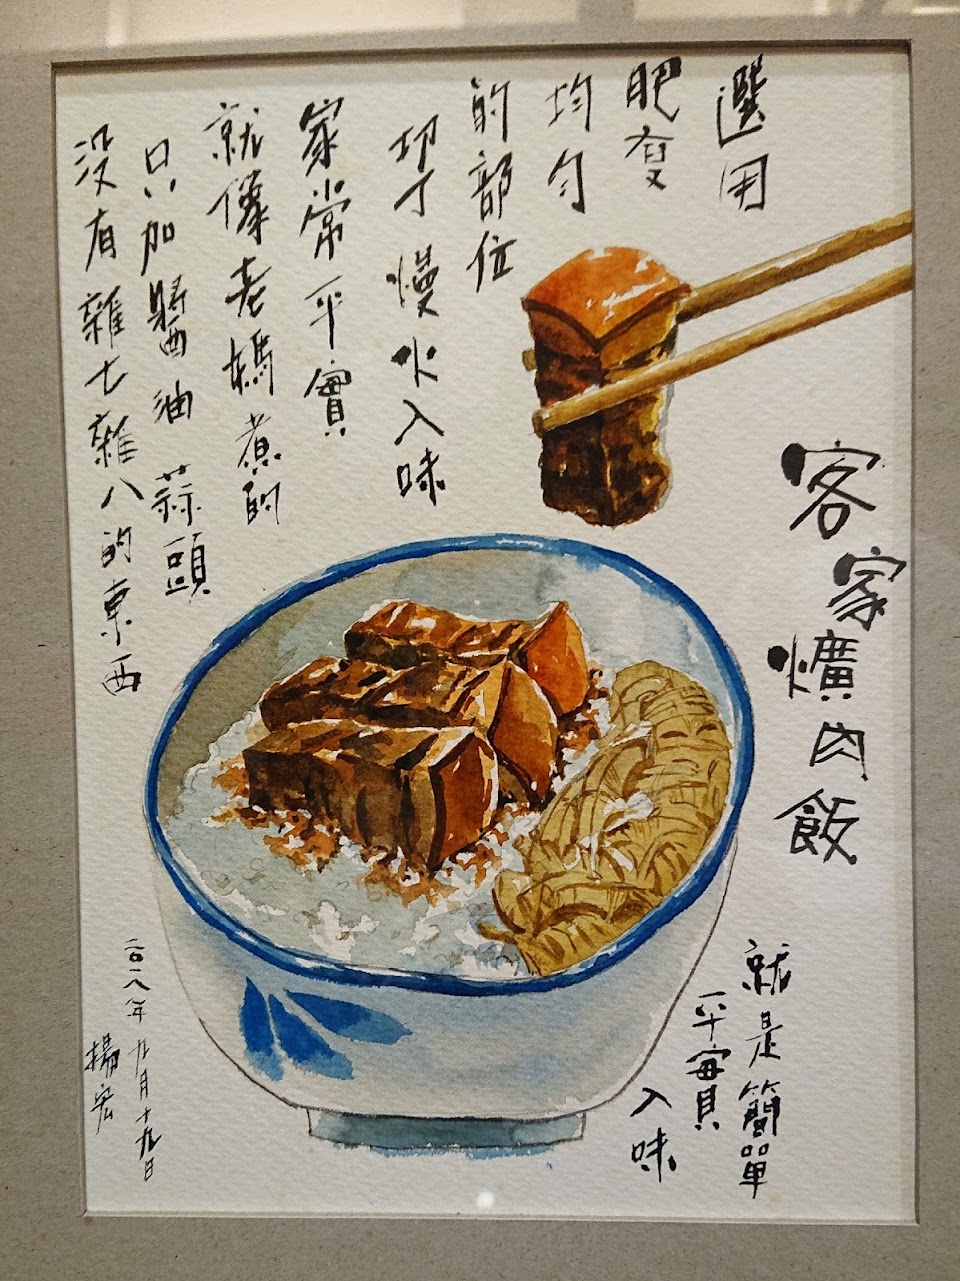 客家爌肉飯
選用
肥瘦
均勻
的部位
切丁慢火入味
家常平實
就像老媽煮的
只加醬油蒜頭
沒有雜七雜八的東西
就是簡單
平實
入味
二〇一八年九月十九日
揚宏